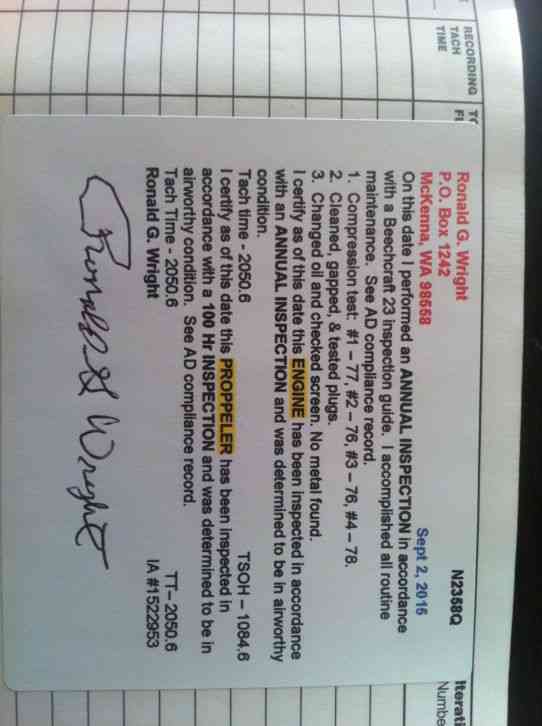 RECORDING
TACH
TIME
Ronald G. Wright
P.O. Box 1242
McKenna, WA 98558
N2358Q
Sept 2, 2015
On this date I performed an ANNUAL INSPECTION in accordance
with a Beechcraft 23 inspection guide. I accomplished all routine
maintenance. See AD compliance record.
1. Compression test: #1 – 77, #2 – 76, #3 – 76, #4 – 78.
2. Cleaned, gapped, & tested plugs.
3. Changed oil and checked screen. No metal found.
I certify as of this date this ENGINE has been inspected in accordance
with an ANNUAL INSPECTION and was determined to be in airworthy
condition.
Tach time - 2050.6 TSOH – 1084.6
I certify as of this date this PROPPELER has been inspected in
accordance with a 100 Hr INSPECTION and was determined to be in
airworthy condition. See AD compliance record.
Tach Time - 2050.6 TT – 2050.6
Ronald G. Wright IA #1522953
Ronald G Wright